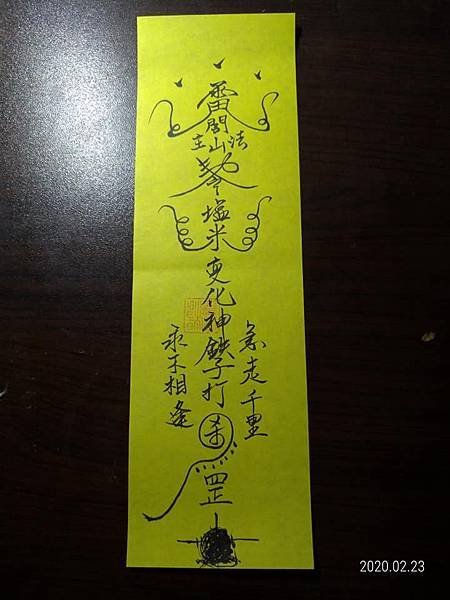 雷
閭山
法主
勅令
塩米变化神鉄子打杀罡
急走千里
永不相逢
2020.02.23